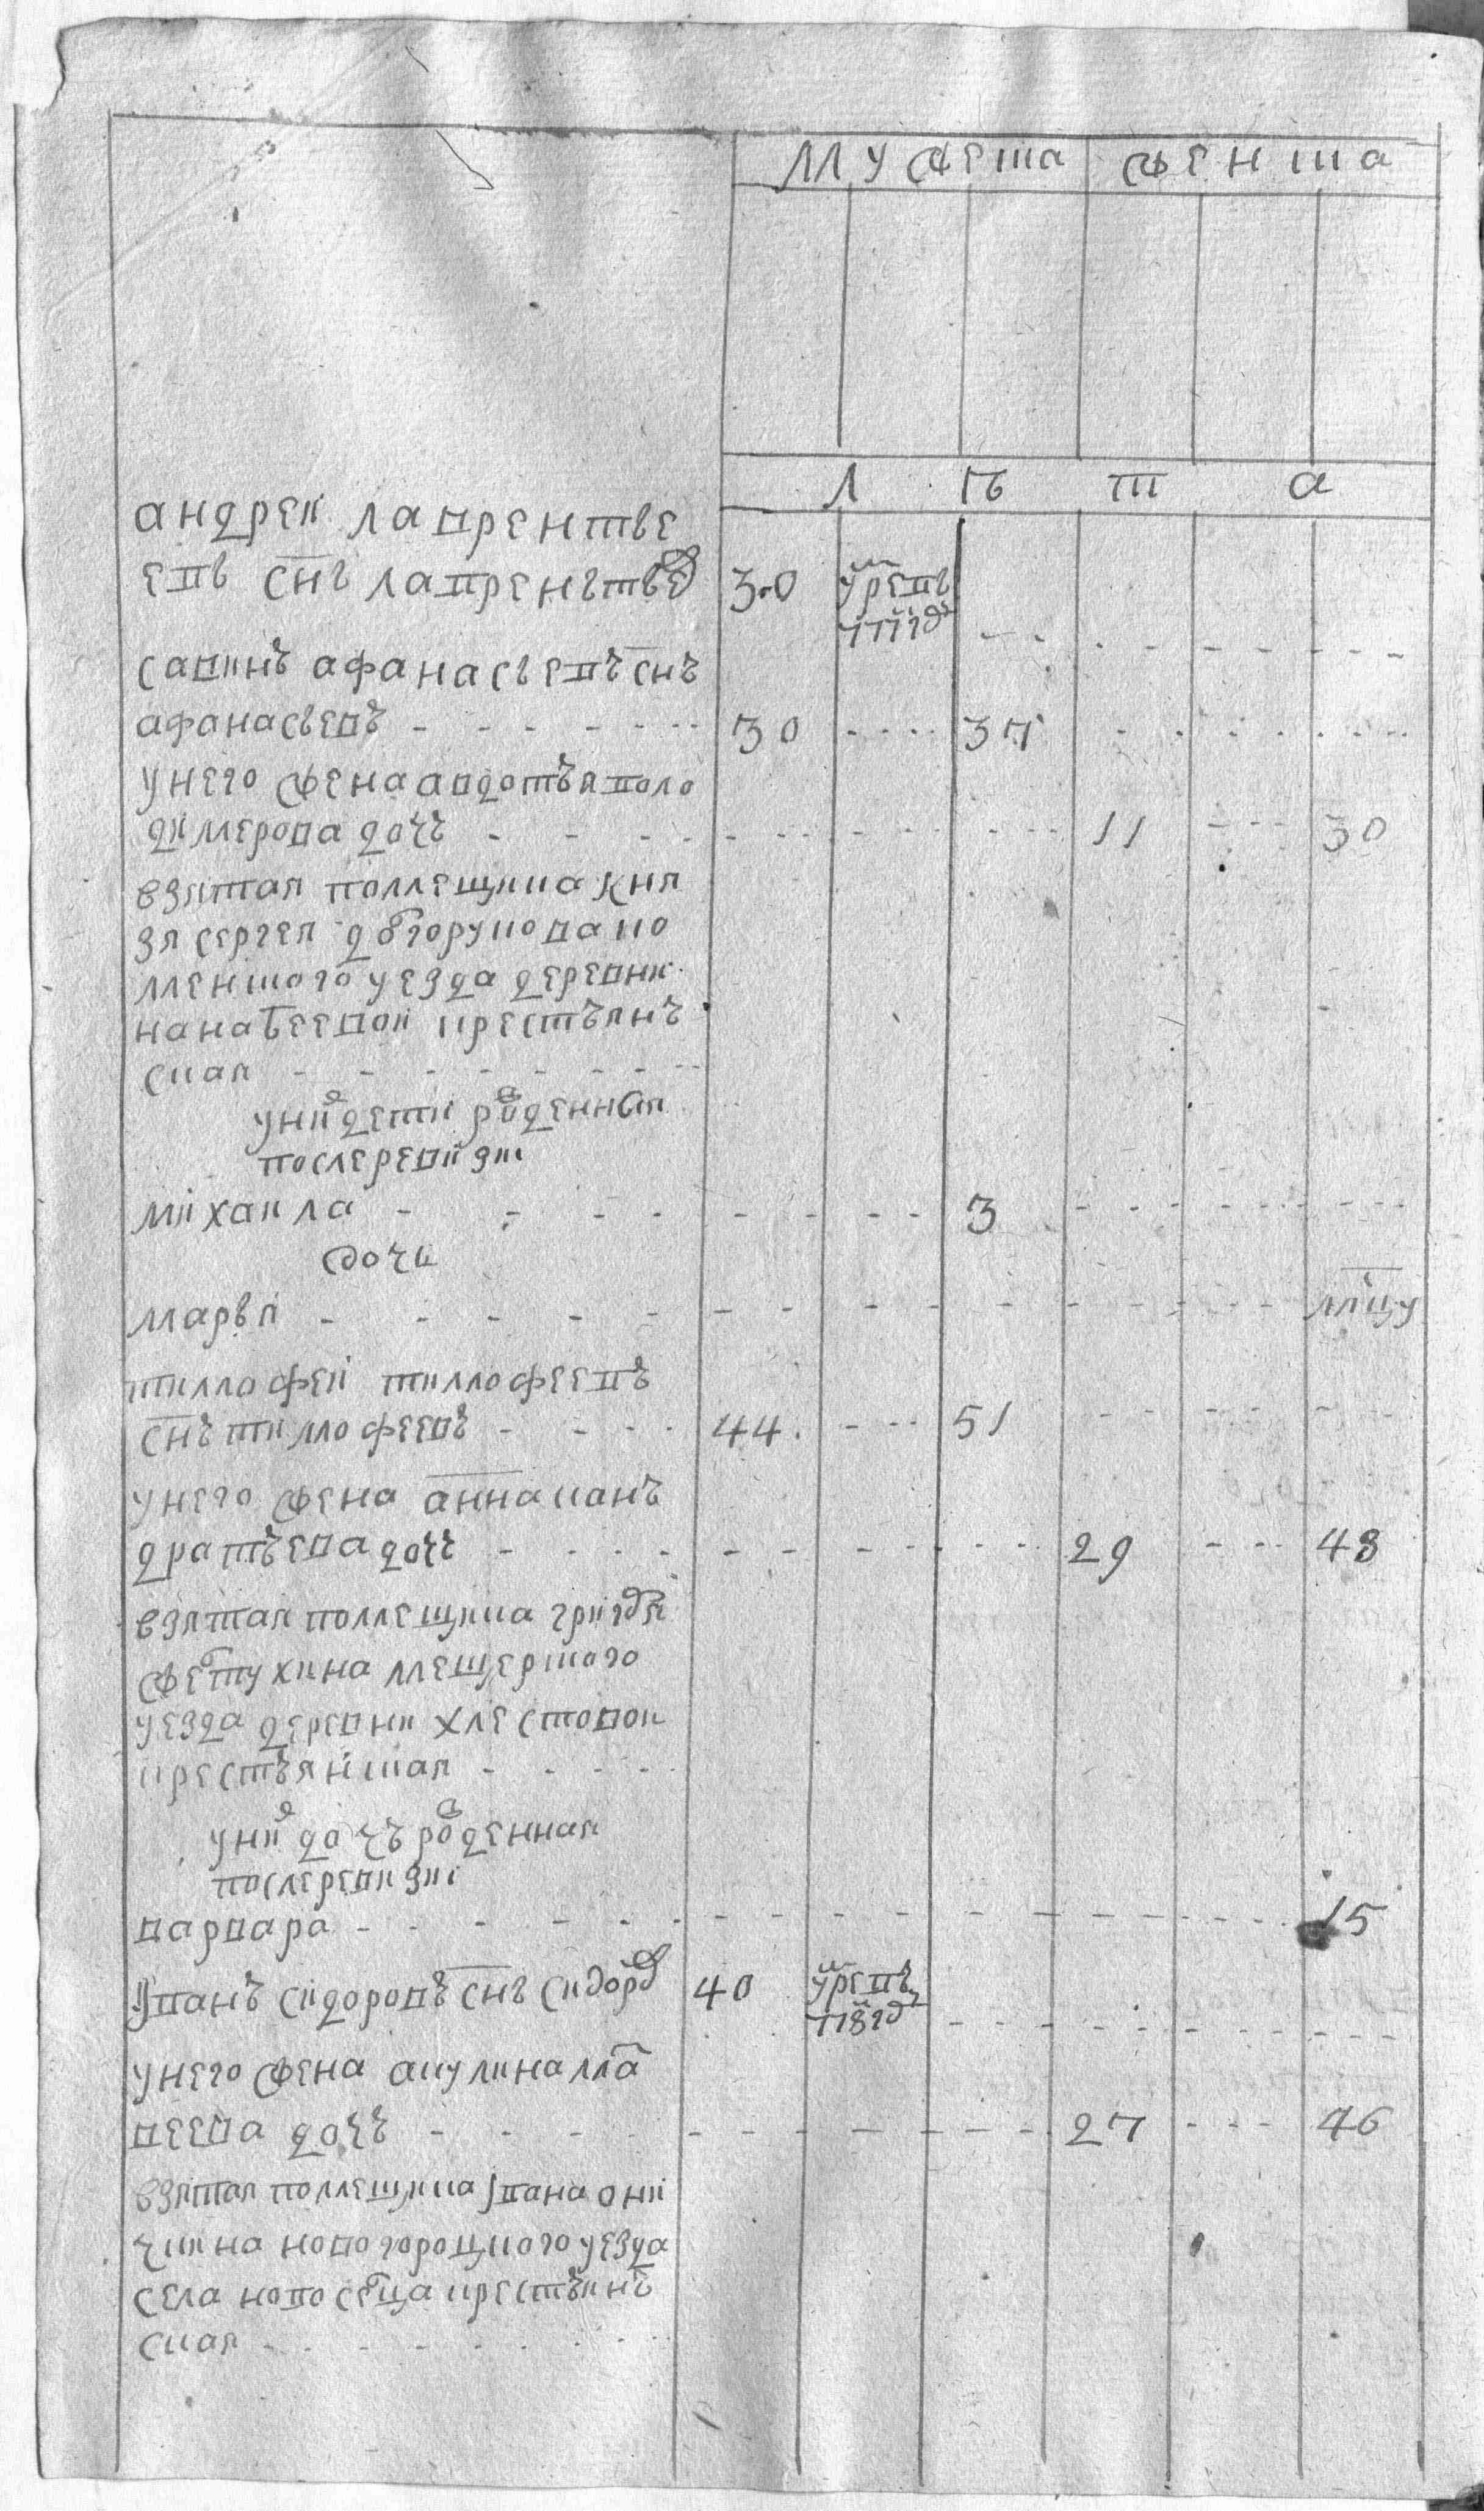 мужеска женска
л ъ т а
андреи лаврентье
евъ снъ лаврентьев 30 умре въ
савинъ афанасьевъ снъ
афанасьевъ 30 37
у него жена авдотья воло
димерова дочь 11 30
взятая помещика кня
зя сергея долгорукова ко
ленского уезда деревни
крестьянъ
ская
у них дети рожденныя
после ревизии
михаила 3
дочь
марья
тимофеи тимофеевъ
снъ тимофеевъ 44 51
у него жена анна канъ
дратьева дочь 29 48
взятая помещика григорья
желтухина мещерского
уезда деревни хлестовои
крестьянская
у них дочь рожденная
после ревизии
варвара 15
иванъ сидоровъ снъ сидоров 40 умре въ
у него жена акулина ма
веева дочь 27 46
взятая помещика ивана они
чкина новогороцкого уезда
села новоселца крестьянъ
ская